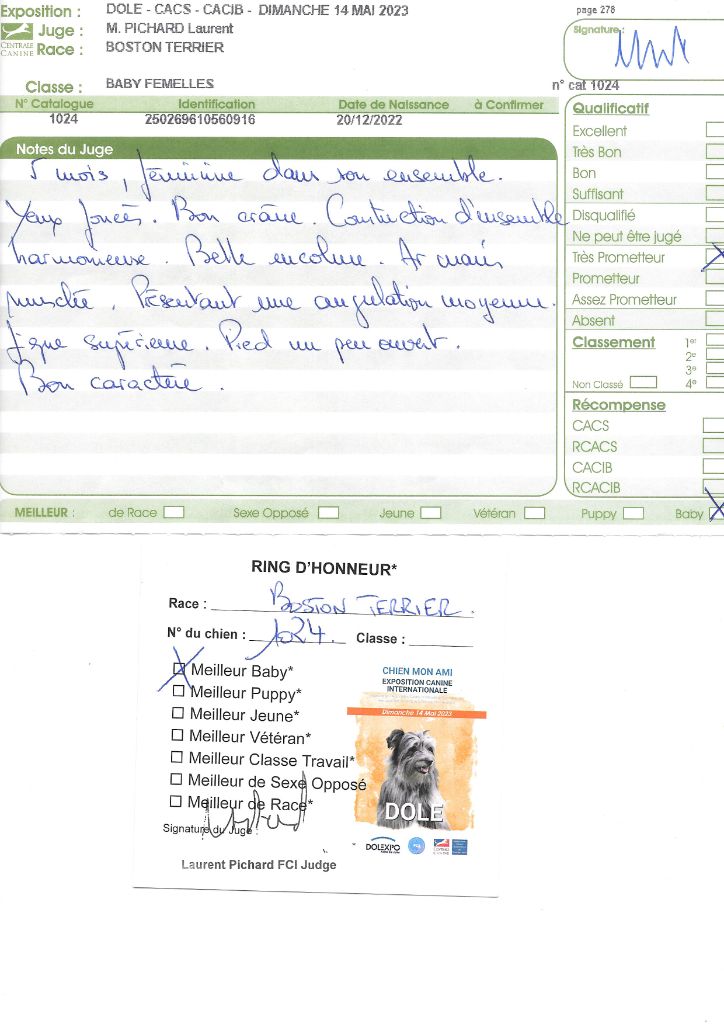 Exposition : DOLE - CACS - CACIB - DIMANCHE 14 MAI 2023
page 278
Juge : M. PICHARD Laurent
CENTRALE CANINE
Race : BOSTON TERRIER
Signature :
Classe : BABY FEMELLES
n° cat 1024
N° Catalogue Identification Date de Naissance à Confirmer
1024 250269610560916 20/12/2022
Notes du Juge
5 mois, féminine dans son ensemble.
Yeux foncés. Bon crâne. Construction d'ensemble
harmonieuse. Belle encolure. Ar mais
musclée. Présentant une angulation moyenne.
ligne supérieure. Pied un peu ouvert.
Bon caractère.
Qualificatif
Excellent
Très Bon
Bon
Suffisant
Disqualifié
Ne peut être jugé
Très Prometteur
Prometteur
Assez Prometteur
Absent
Classement 1er
2e
3e
Non Classé 4e
Récompense
CACS
RCACS
CACIB
RCACIB
MEILLEUR : de Race Sexe Opposé Jeune Vétéran Puppy Baby
RING D'HONNEUR*
Race : BOSTON TERRIER.
N° du chien : 1024. Classe :
Meilleur Baby*
Meilleur Puppy*
Meilleur Jeune*
Meilleur Vétéran*
Meilleur Classe Travail*
Meilleur de Sexe Opposé
Meilleur de Race*
Signature du Juge
Laurent Pichard FCI Judge
CHIEN MON AMI
EXPOSITION CANINE
INTERNATIONALE
Dimanche 14 Mai 2023
DOLE
DOLEXPO